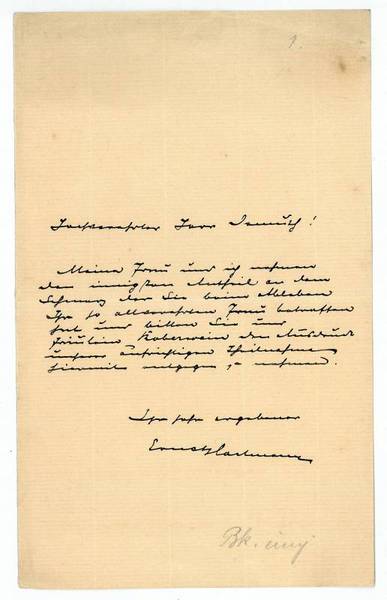 1.
Hochverehrter Herr Demuth!
Meine Frau und ich nehmen
den innigsten Antheil an dem
Schmerz der Sie beim Ableben
Ihr so allverehrten Frau betroffen
hat und bitten Sie und
Fräulein Koberwein den Ausdruck
unserer aufrichtigen Theilnahme
hiermit entgegen zu nehmen.
Ihr sehr ergebener
Ernst Hartmann
Bk.